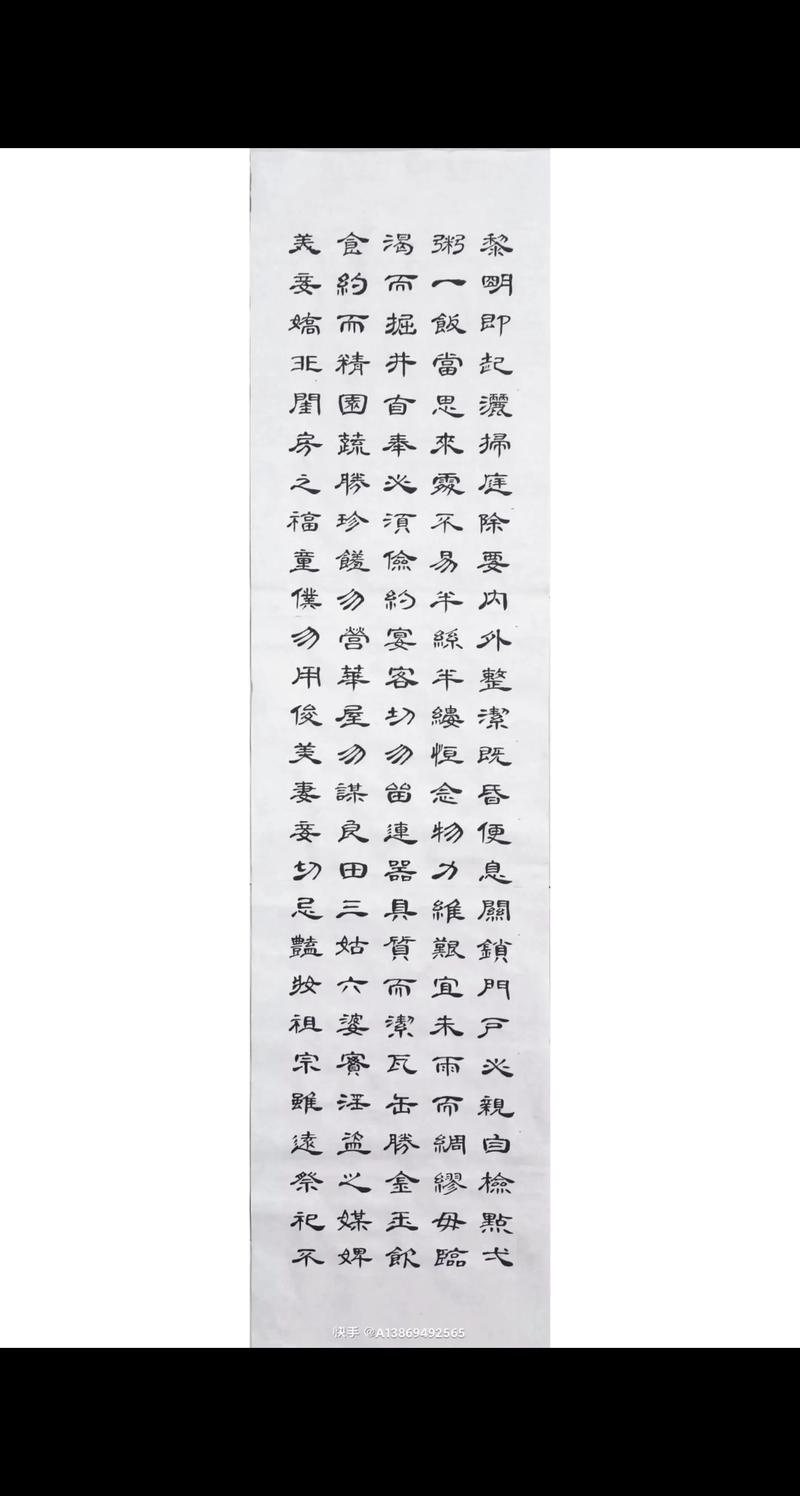 黎明即起灑掃庭除要内外整潔既昏便息關鎖門戶必親自檢點弌
粥一飯當思來處不易半絲半縷恒念物力維艱宜未雨而綢繆毋臨
渴而掘井自奉必須儉約宴客切勿留連器具質而潔瓦缶勝金玉飲
食約而精園蔬勝珍饈勿營華屋勿謀良田三姑六婆實淫盜之媒婢
美妾嬌非閨房之福童僕勿用俊美妻妾切忌豔妝祖宗雖遠祭祀不
快手 @A13869492565